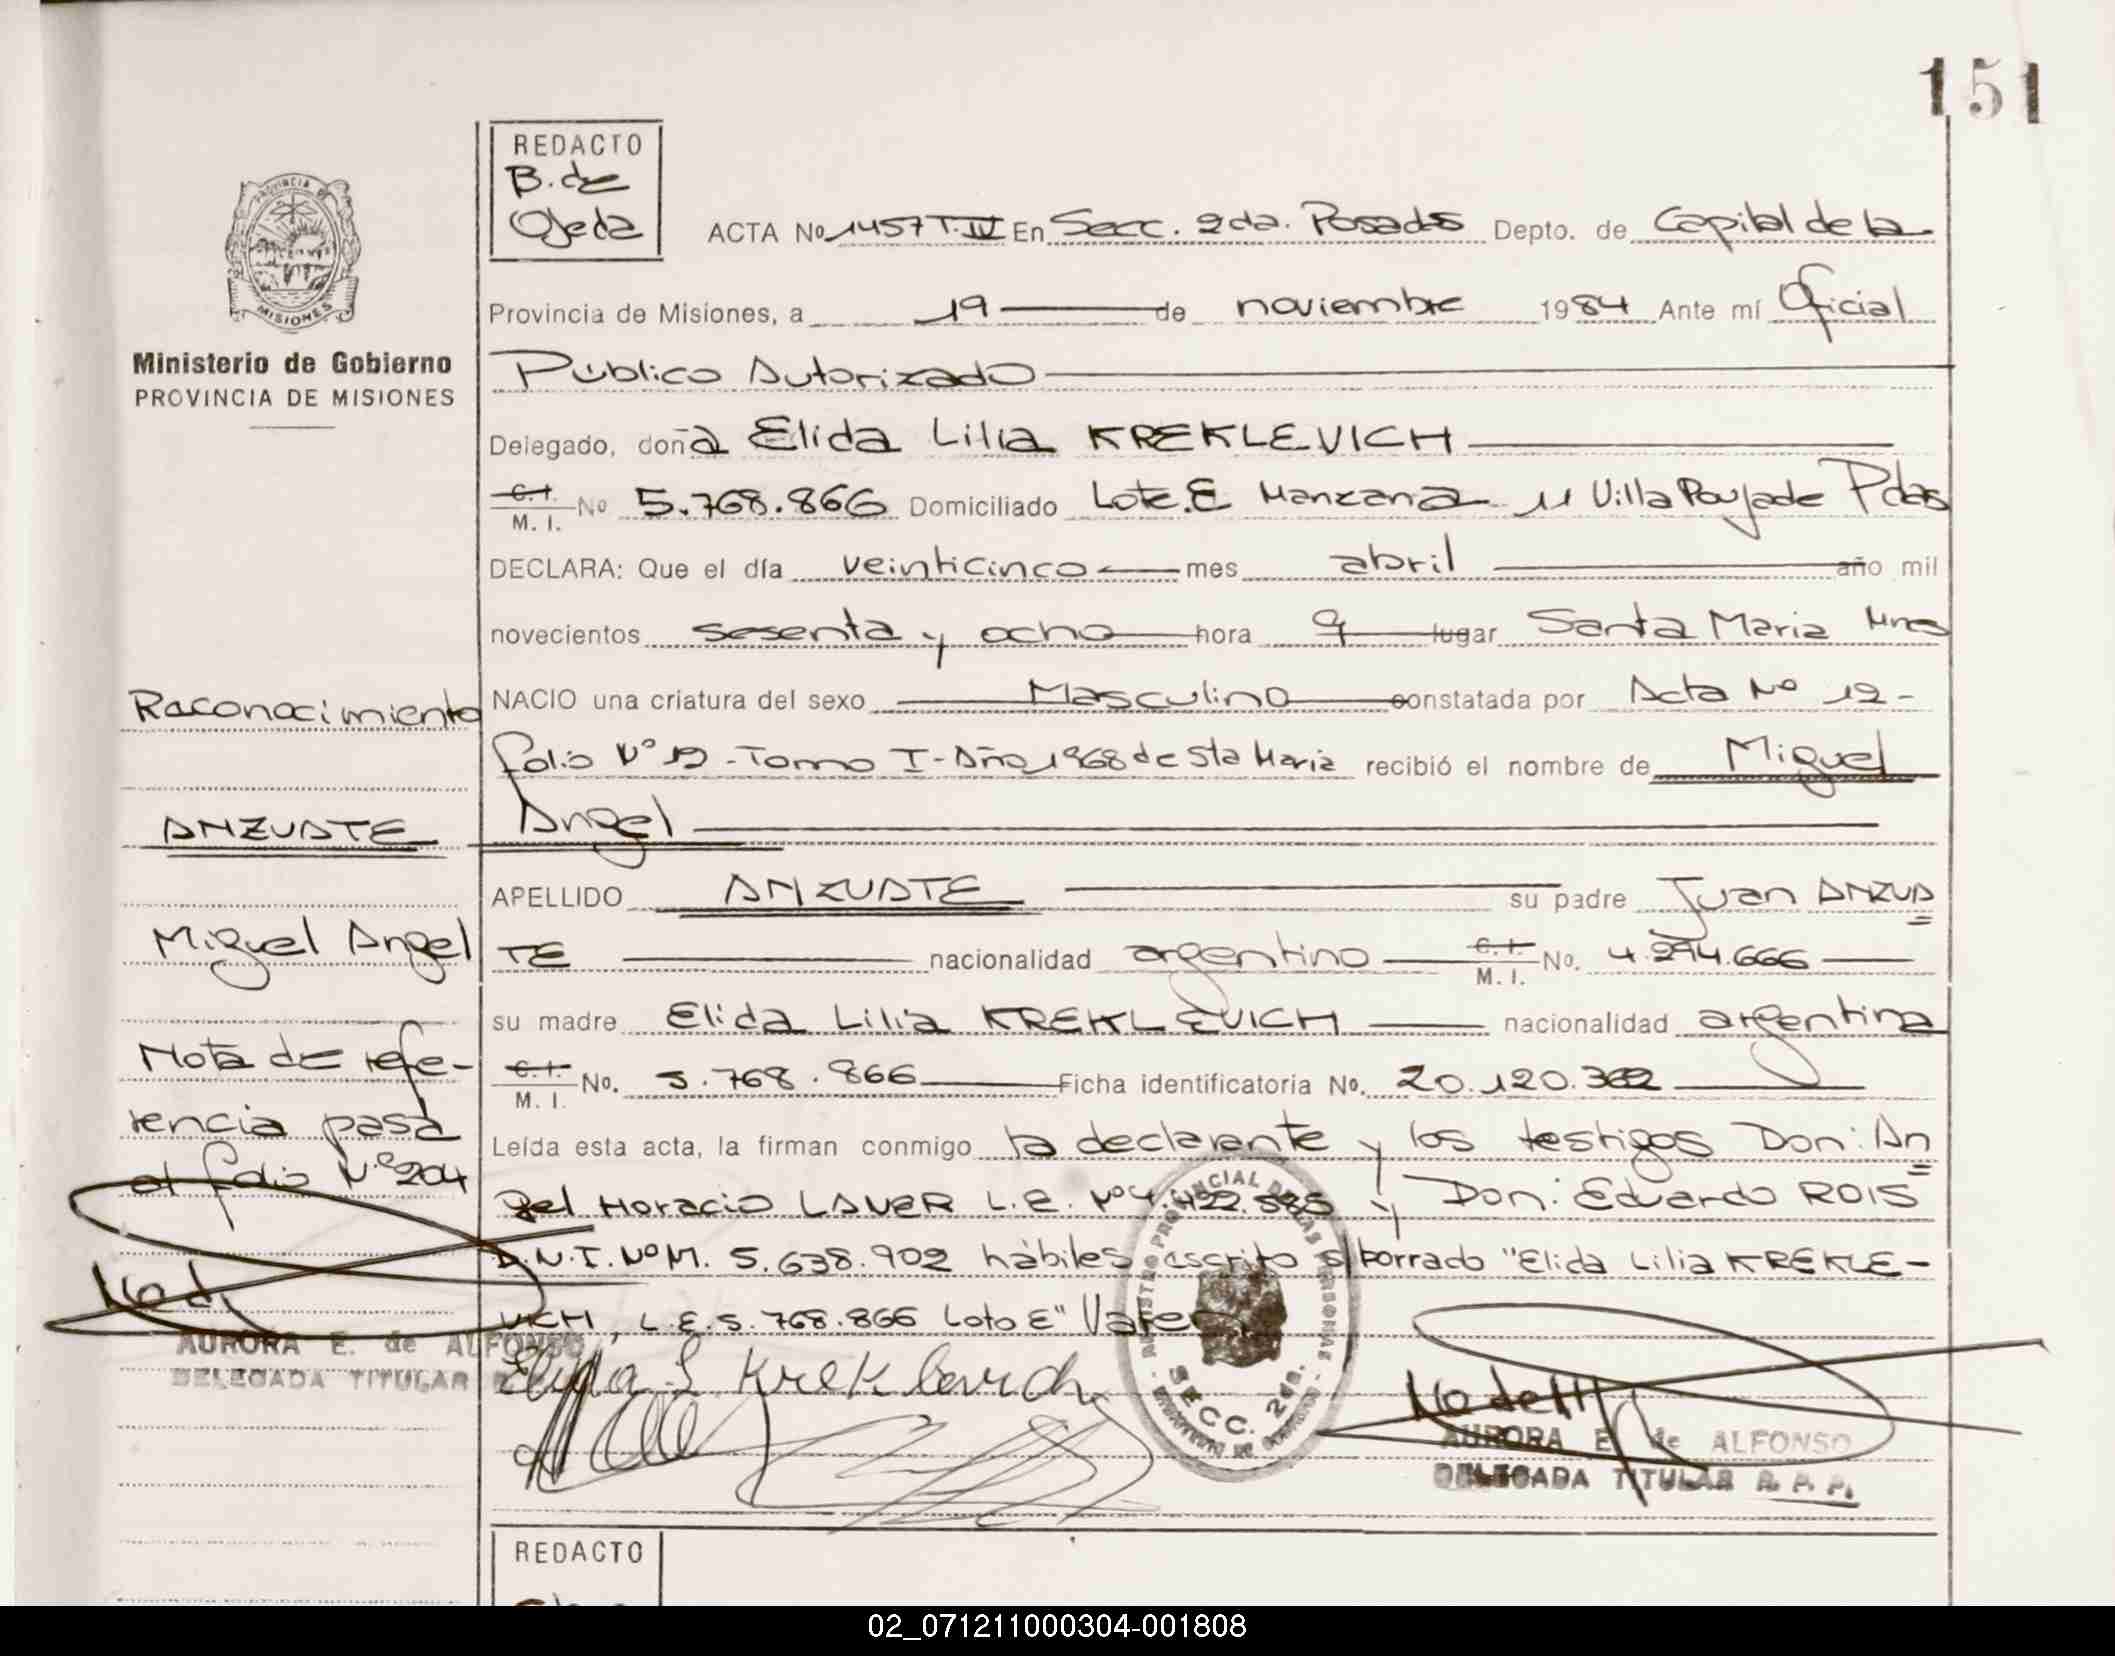 151
REDACTO
B. de
Ojeda
ACTA No 1457 T. IV En Secc. 2da. Posadas Depto. de Capital de la
PROVINCIA DE
MISIONES
Ministerio de Gobierno
PROVINCIA DE MISIONES
Provincia de Misiones, a 19 de noviembre 1984 Ante mí Oficial
Público Autorizado
Delegado, doña Elida Lilia KREKLEVICH
C.I. M. I. No 5.768.866 Domiciliado Lote.E Manzana 11 Villa Poujade Pdas
DECLARA: Que el día veinticinco mes abril año mil
novecientos sesenta y ocho hora 9 lugar Santa Maria Mnes
NACIO una criatura del sexo Masculino constatada por Acta Nº 12-
folio Nº 12 - Tomo I - Año 1968 de Sta Maria recibió el nombre de Miguel
Angel
APELLIDO ANZUATE su padre Juan ANZUA
TE nacionalidad argentino C.I. M. I. No. 4.294.666
su madre Elida Lilia KREKLEVICH nacionalidad argentina
C.I. M. I. No. 5.768.866 Ficha identificatoria No. 20.120.362
Leída esta acta, la firman conmigo la declarante y los testigos Don: An
gel Horacio LAUER L.E. Nº 4.422.585 y Don: Eduardo ROIS
D.N.I. Nº M. 5.638.902 hábiles escrito s/borrado "Elida Lilia KREKLE-
VICH, L.E.5.768.866 Lote E" Vale
Elida L Kreklevich
Reconocimiento
ANZUATE
Miguel Angel
Nota de refe-
rencia pasa
al folio Nº 204
AURORA E. de ALFONSO
DELEGADA TITULAR
REGISTRO PROVINCIAL DE LAS PERSONAS
SECC. 2da.
AURORA E. de ALFONSO
DELEGADA TITULAR R. P. P.
REDACTO
02_071211000304-001808